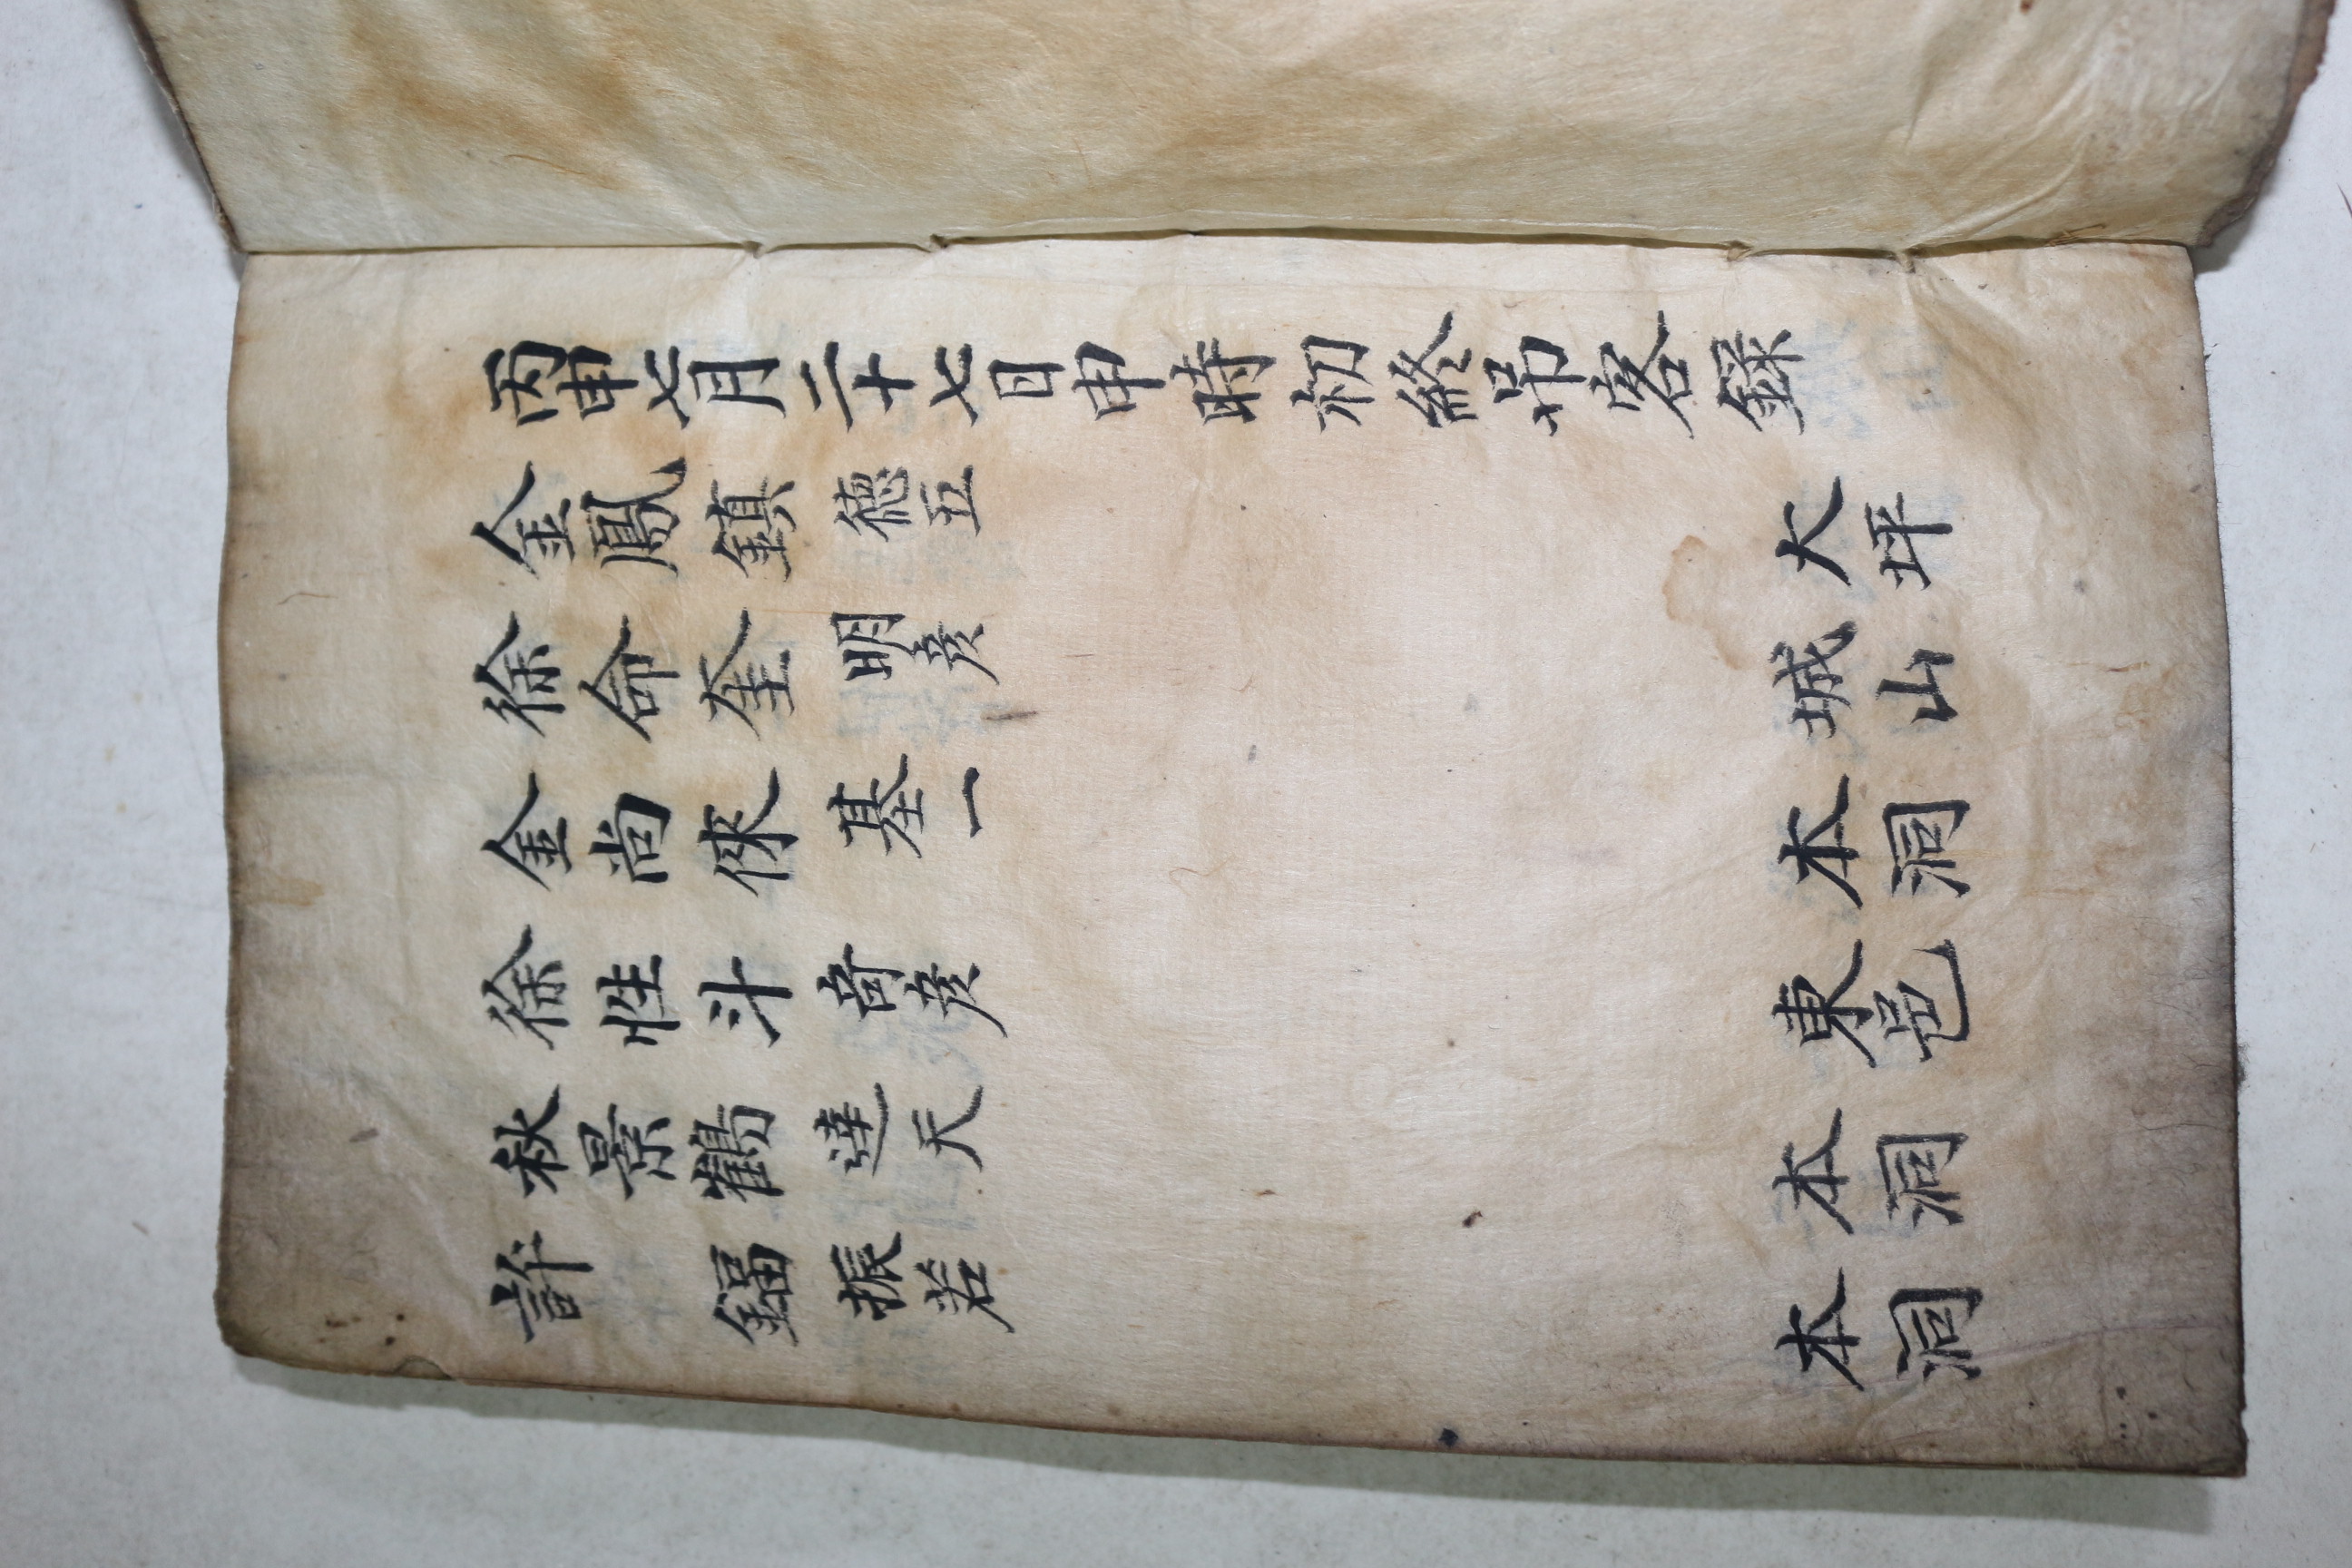 丙申七月二十七日申時初終吊客錄
金鳳鎮 德五 大坪
徐命奎 明彦 城山
金尚倈 基一 本洞
徐性斗 奇彦 東邑
秋景鶴 達天 本洞
許鍢 振若 本洞